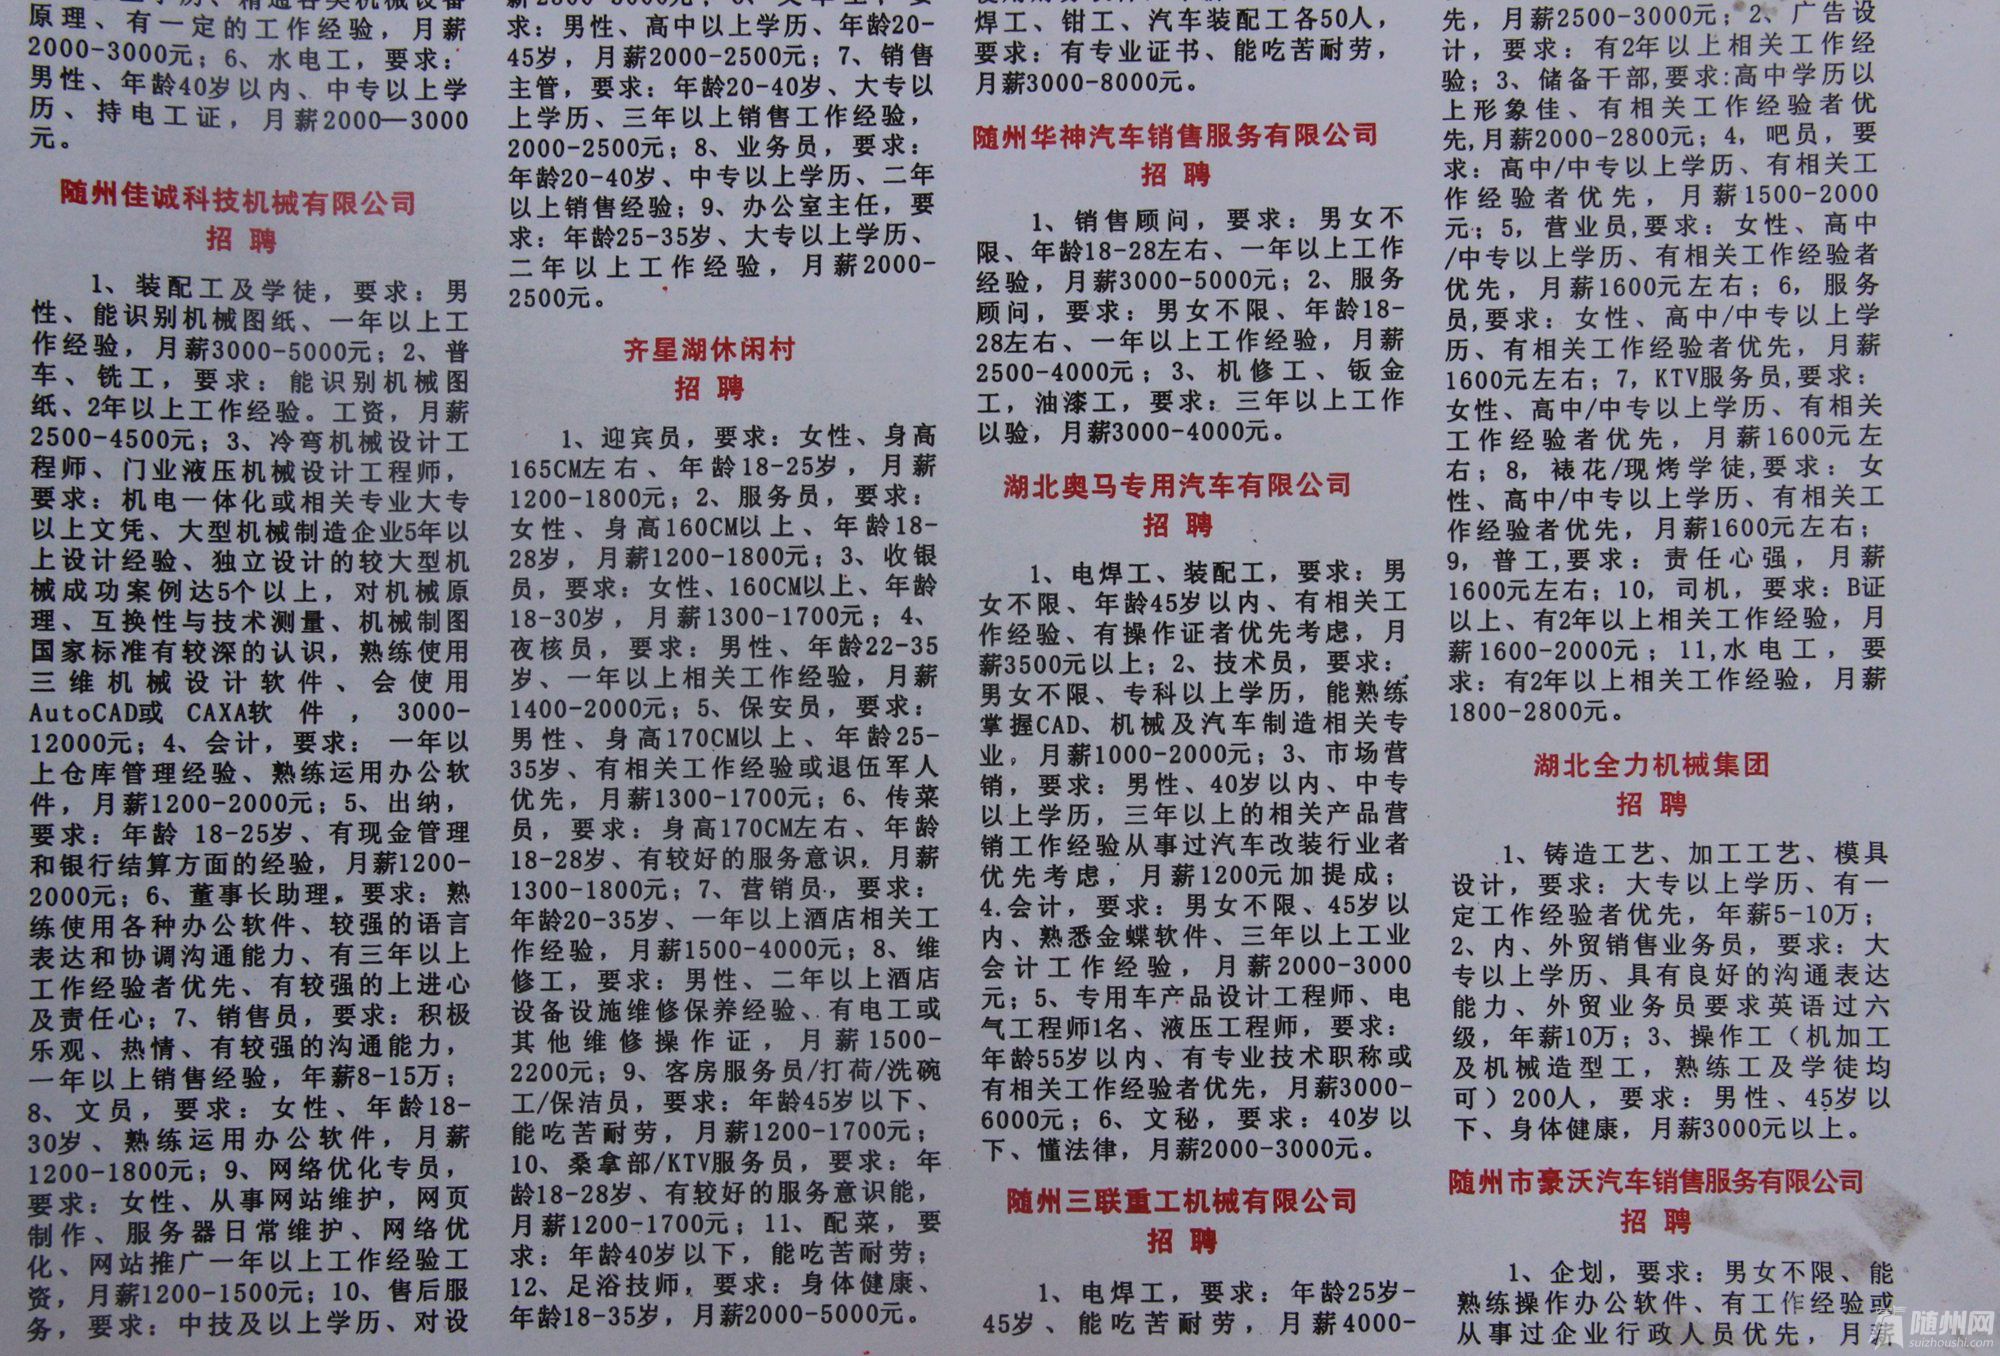 上学历、精通各类机械设备
原理、有一定的工作经验，月薪
2000-3000元；6、水电工，要求：
男性、年龄40岁以内、中专以上学
历、持电工证，月薪2000—3000
元。
随州佳诚科技机械有限公司
招 聘
1、装配工及学徒，要求：男
性、能识别机械图纸、一年以上工
作经验，月薪3000-5000元；2、普
车、铣工，要求：能识别机械图
纸、2年以上工作经验。工资，月薪
2500-4500元；3、冷弯机械设计工
程师、门业液压机械设计工程师，
要求：机电一体化或相关专业大专
以上文凭、大型机械制造企业5年以
上设计经验、独立设计的较大型机
械成功案例达5个以上，对机械原
理、互换性与技术测量、机械制图
国家标准有较深的认识，熟练使用
三维机械设计软件、会使用
AutoCAD或 CAXA软 件 ， 3000-
12000元；4、会计，要求： 一年以
上仓库管理经验、熟练运用办公软
件，月薪1200-2000元；5、出纳，
要求：年龄 18-25岁、有现金管理
和银行结算方面的经验，月薪1200-
2000元；6、董事长助理，要求：熟
练使用各种办公软件、较强的语言
表达和协调沟通能力、有三年以上
工作经验者优先、有较强的上进心
及责任心；7、销售员，要求：积极
乐观、热情、有较强的沟通能力，
一年以上销售经验，年薪8-15万；
8、文员，要求：女性、年龄18-
30岁、熟练运用办公软件，月薪
1200-1800元；9、网络优化专员，
要求：女性、从事网站维护，网页
制作、服务器日常维护、网络优
化、网站推广一年以上工作经验工
资，月薪1200-1500元；10、售后服
务，要求：中技及以上学历、对设
求：男性、高中以上学历、年龄20-
45岁，月薪2000-2500元；7、销售
主管，要求：年龄20-40岁、大专以
上学历、三年以上销售工作经验，
2000-2500元；8、业务员，要求：
年龄20-40岁、中专以上学历、二年
以上销售经验；9、办公室主任，要
求：年龄25-35岁、大专以上学历、
二年以上工作经验，月薪2000-
2500元。
齐星湖休闲村
招 聘
1、迎宾员，要求：女性、身高
165CM左右、年龄18-25岁，月薪
1200-1800元；2、服务员，要求：
女性、身高160CM以上、年龄18-
28岁，月薪1200-1800元；3、收银
员，要求：女性、160CM以上、年龄
18-30岁，月薪1300-1700元；4、
夜核员，要求：男性、年龄22-35
岁、一年以上相关工作经验，月薪
1400-2000元；5、保安员，要求：
男性、身高170CM以上、年龄25-
35岁、有相关工作经验或退伍军人
优先，月薪1300-1700元；6、传菜
员，要求：身高170CM左右、年龄
18-28岁、有较好的服务意识，月薪
1300-1800元；7、营销员，要求：
年龄20-35岁、一年以上酒店相关工
作经验，月薪1500-4000元；8、维
修工，要求：男性、二年以上酒店
设备设施维修保养经验、有电工或
其他维修操作证，月薪1500-
2200元；9、客房服务员/打荷/洗碗
工/保洁员，要求：年龄45岁以下、
能吃苦耐劳，月薪1200-1700元；
10、桑拿部/KTV服务员，要求：年
龄18-28岁、有较好的服务意识能，
月薪1200-1700元；11、配菜，要
求：年龄40岁以下，能吃苦耐劳；
12、足浴技师，要求：身体健康、
年龄18-35岁，月薪2000-5000元。
焊工、钳工、汽车装配工各50人，
要求：有专业证书、能吃苦耐劳，
月薪3000-8000元。
随州华神汽车销售服务有限公司
招 聘
1、销售顾问，要求：男女不
限、年龄18-28左右、一年以上工作
经验，月薪3000-5000元；2、服务
顾问，要求：男女不限、年龄18-
28左右、一年以上工作经验，月薪
2500-4000元；3、机修工、钣金
工，油漆工，要求：三年以上工作
以验，月薪3000-4000元。
湖北奥马专用汽车有限公司
招 聘
1、电焊工、装配工，要求：男
女不限、年龄45岁以内、有相关工
作经验、有操作证者优先考虑，月
薪3500元以上；2、技术员，要求：
男女不限、专科以上学历，能熟练
掌握CAD、机械及汽车制造相关专
业，月薪1000-2000元；3、市场营
销，要求：男性、40岁以内、中专
以上学历，三年以上的相关产品营
销工作经验从事过汽车改装行业者
优先考虑，月薪1200元加提成；
4.会计，要求：男女不限、45岁以
内、熟悉金蝶软件、三年以上工业
会计工作经验，月薪2000-3000
元；5、专用车产品设计工程师、电
气工程师1名、液压工程师，要求：
年龄55岁以内、有专业技术职称或
有相关工作经验者优先，月薪3000-
6000元；6、文秘，要求：40岁以
下、懂法律，月薪2000-3000元。
随州三联重工机械有限公司
招 聘
1、电焊工，要求：年龄25岁-
45岁、能吃苦耐劳，月薪4000-
先，月薪2500-3000元；2、广告设
计，要求：有2年以上相关工作经
验；3、储备干部,要求:高中学历以
上形象佳、有相关工作经验者优
先,月薪2000-2800元；4，吧员，要
求：高中/中专以上学历、有相关工
作经验者优先，月薪1500-2000
元；5，营业员,要求：女性、高中
/中专以上学历、有相关工作经验者
优先，月薪1600元左右；6，服务
员,要求：女性、高中/中专以上学
历、有相关工作经验者优先，月薪
1600元左右；7，KTV服务员,要求：
女性、高中/中专以上学历、有相关
工作经验者优先，月薪1600元左
右；8，裱花/现烤学徒,要求：女
性、高中/中专以上学历、有相关工
作经验者优先，月薪1600元左右；
9，普工,要求：责任心强，月薪
1600元左右；10，司机，要求：B证
以上、有2年以上相关工作经验，月
薪1600-2000元；11,水电工，要
求：有2年以上相关工作经验，月薪
1800-2800元。
湖北全力机械集团
招 聘
1、铸造工艺、加工工艺、模具
设计，要求：大专以上学历、有一
定工作经验者优先，年薪5-10万；
2、内、外贸销售业务员，要求：大
专以上学历、具有良好的沟通表达
能力、外贸业务员要求英语过六
级，年薪10万；3、操作工（机加工
及机械造型工，熟练工及学徒均
可）200人，要求：男性、45岁以
下、身体健康，月薪3000元以上。
随州市豪沃汽车销售服务有限公司
招 聘
1、企划，要求：男女不限、能
熟练操作办公软件、有工作经验或
从事过企业行政人员优先，月薪
随州网
suizhoushi.com